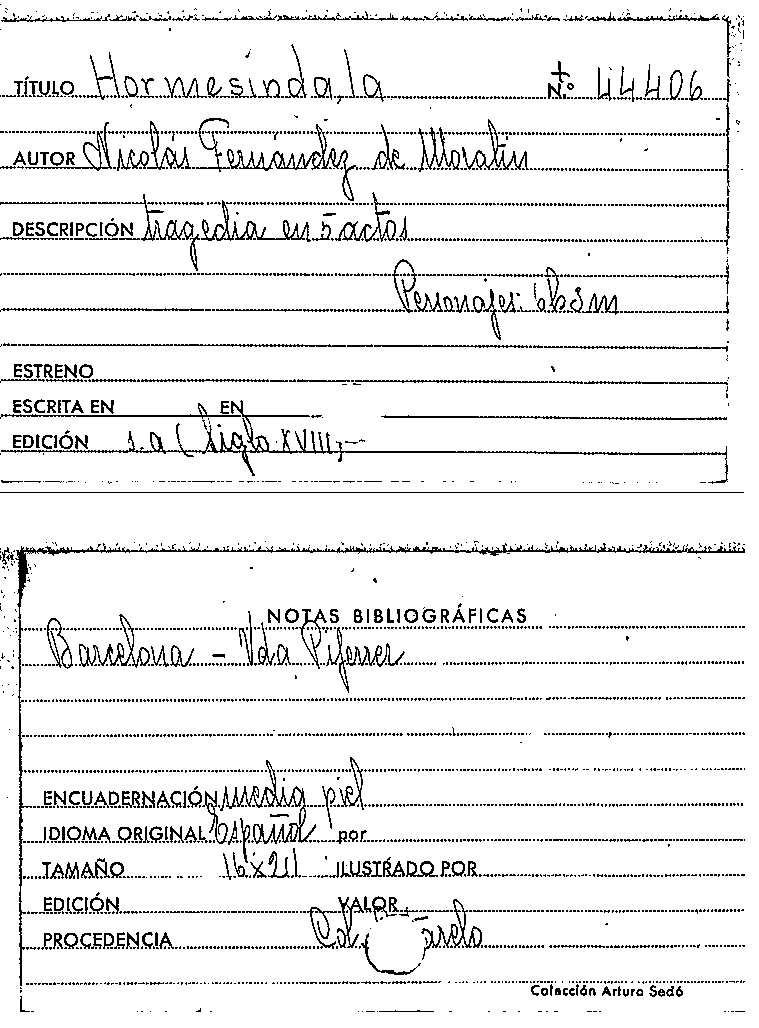 TÍTULO Hormesinda, la N.º 44406
AUTOR Nicolás Fernández de Moratin
DESCRIPCIÓN tragedia en 5 actos
Personajes: 6h 3m
ESTRENO
ESCRITA EN EN
EDICIÓN s. a ( Siglo XVIII;-
NOTAS BIBLIOGRÁFICAS
Barcelona - Vda Piferrer
ENCUADERNACIÓN media piel
IDIOMA ORIGINAL Español por
TAMAÑO 16x21 ILUSTRADO POR
EDICIÓN VALOR
PROCEDENCIA Col.
Colección Arturo Sedó